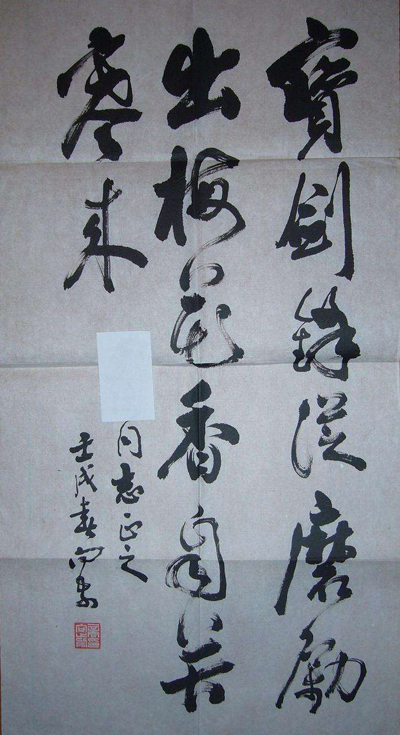 寶劍鋒從磨勵
出梅花香自苦
寒来
同志正之
壬戌春